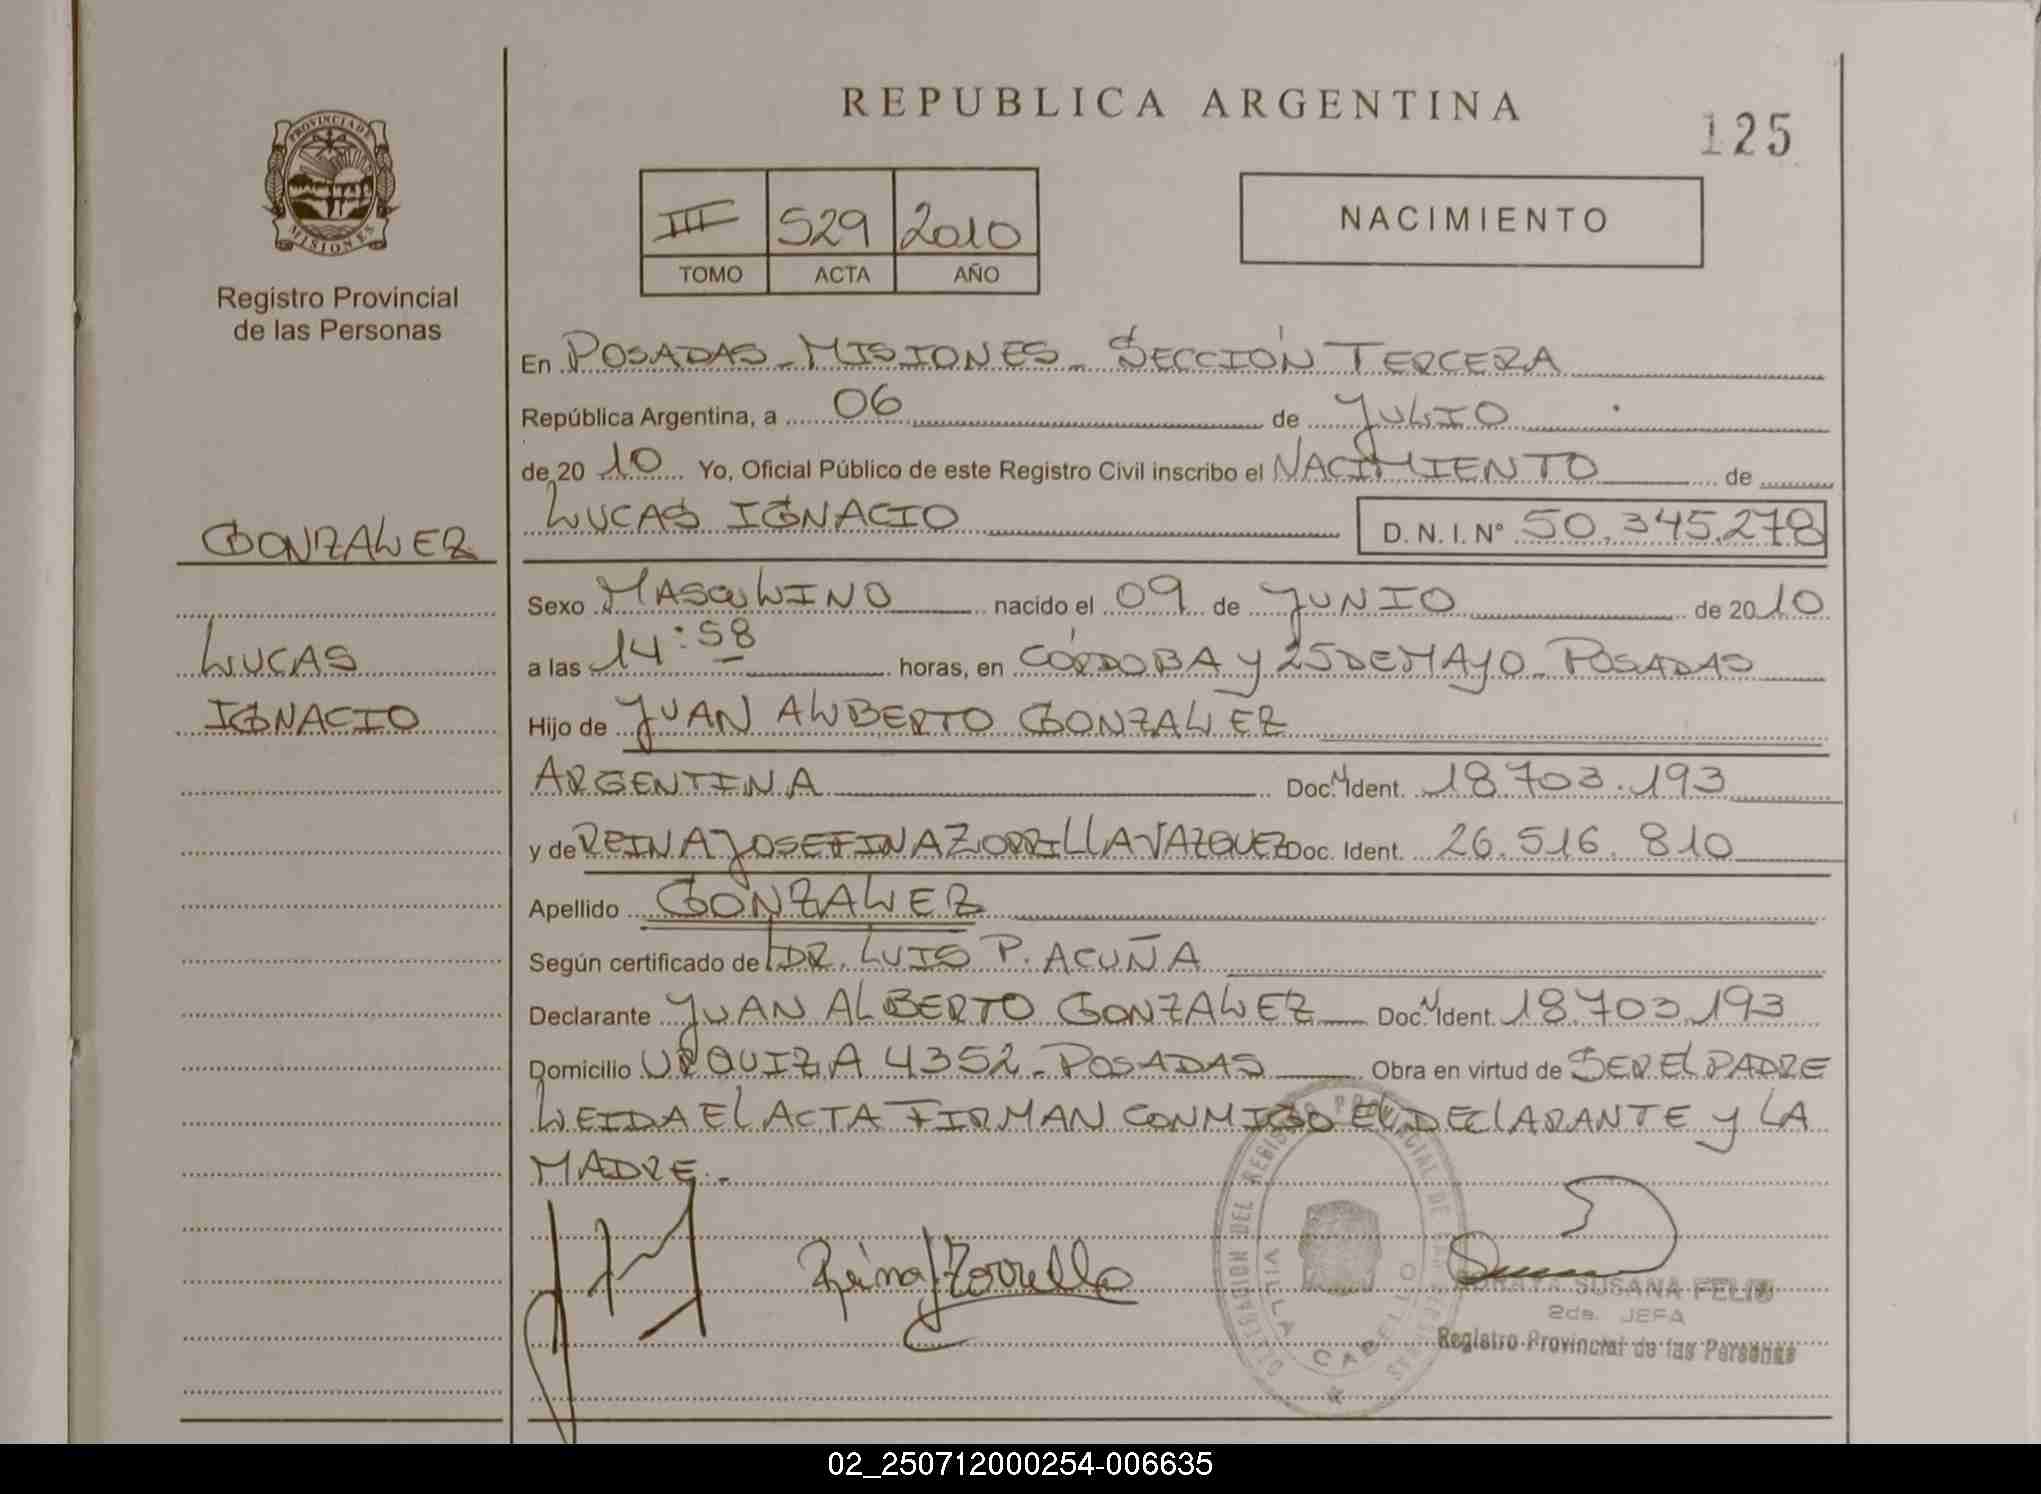 REPUBLICA ARGENTINA
125
PROVINCIA DE
MISIONES
Registro Provincial
de las Personas
III 529 2010
TOMO ACTA AÑO
NACIMIENTO
En POSADAS - MISIONES - SECCIÓN TERCERA
República Argentina, a 06 de JULIO
de 20 10 Yo, Oficial Público de este Registro Civil inscribo el NACIMIENTO de
LUCAS IGNACIO D. N. I. N° 50.345.278
GONZALEZ
LUCAS
IGNACIO
Sexo MASCULINO nacido el 09 de JUNIO de 2010
a las 14:58 horas, en CÓRDOBA y 25 DE MAYO - POSADAS
Hijo de JUAN ALBERTO GONZALEZ
ARGENTINA Doc. N Ident. 18.703.193
y de REINA JOSEFINA ZORRILLA VAZQUEZ Doc. Ident. 26.516.810
Apellido GONZALEZ
Según certificado de DR. LUIS P. ACUÑA
Declarante JUAN ALBERTO GONZALEZ Doc. N Ident. 18.703.193
Domicilio URQUIZA 4352 - POSADAS Obra en virtud de SER EL PADRE
LEIDA EL ACTA FIRMAN CONMIGO EL DECLARANTE y LA
MADRE.-
Reina J Zorrilla
DELEGACION DEL REGISTRO PROVINCIAL DE LAS PERSONAS
VILLA CABELLO
SORAYA SUSANA FELIU
2da. JEFA
Registro Provincial de las Personas
02_250712000254-006635